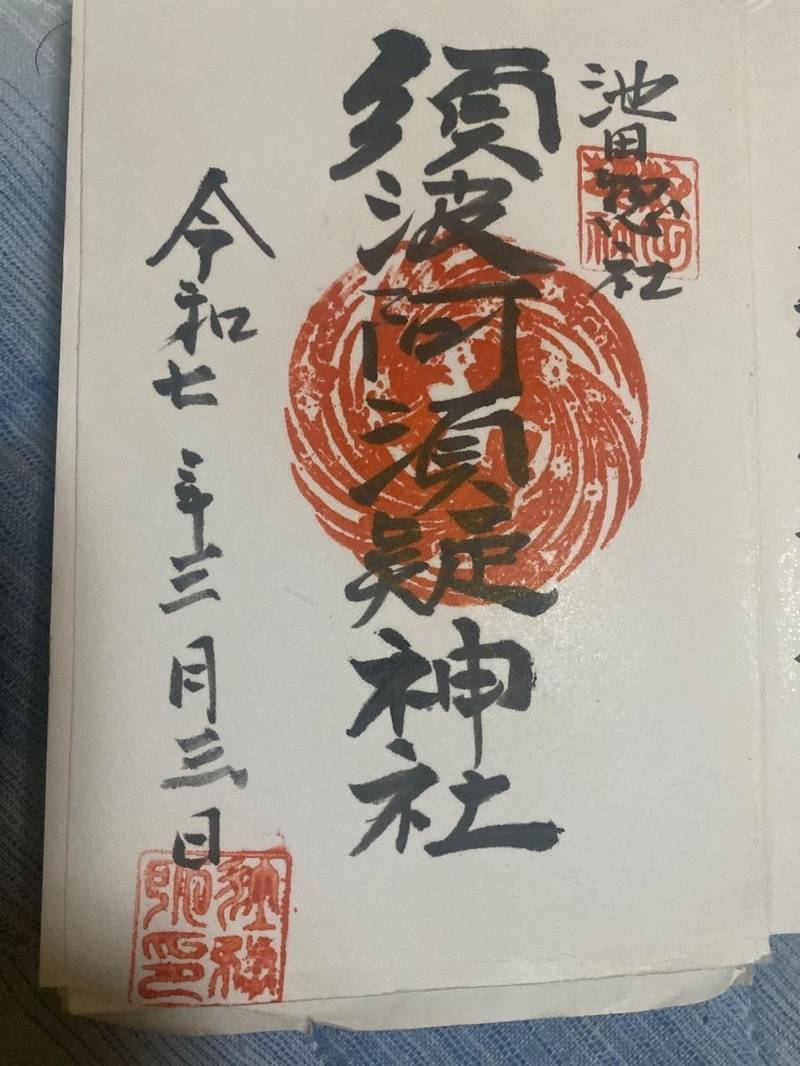 池田惣社
須波阿須疑神社
令和七年三月三日